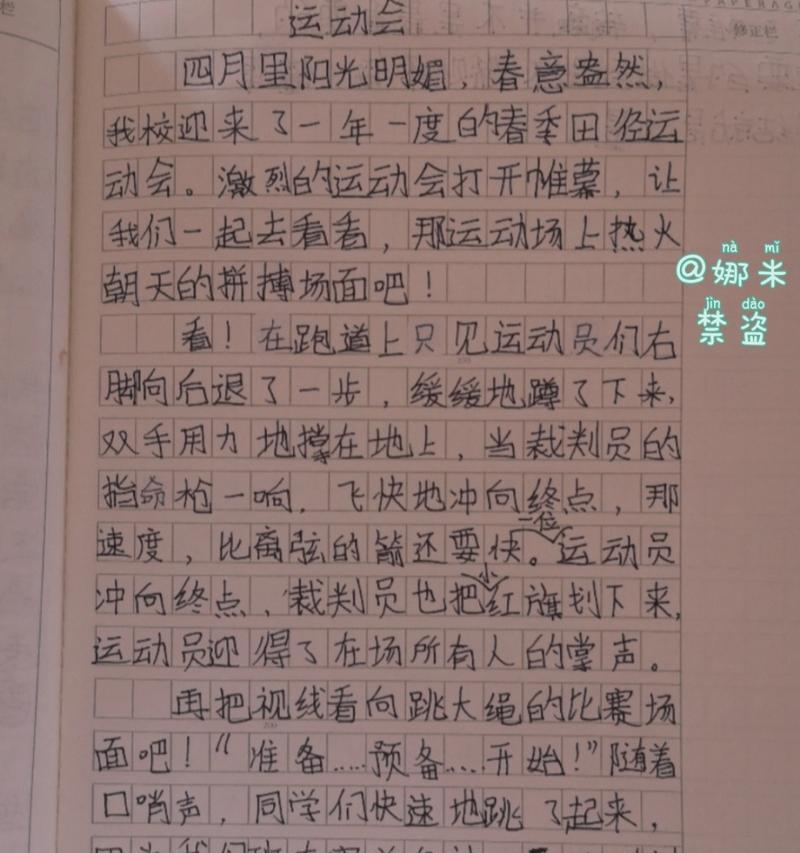 运动会
四月里阳光明媚，春意盎然，
我校迎来了一年一度的春季田径运
动会。激烈的运动会打开帷幕，让
我们一起去看看，那运动场上热火
朝天的拼搏场面吧！
看！在跑道上只见运动员们右
脚向后退了一步，缓缓地蹲了下来，
双手用力地撑在地上，当裁判员的
指命枪一响，飞快地冲向终点，那
速度，比离弦的箭还要快。一位运动员
冲向终点，裁判员也把小红旗划下来，
运动员迎得了在场所有人的掌声。
再把视线看向跳大绳的比赛场
面吧！“准备……预备……开始！”随着
口哨声，同学们快速地跳了起来，
nà mǐ
@娜米
jìn dào
禁盗
修正栏